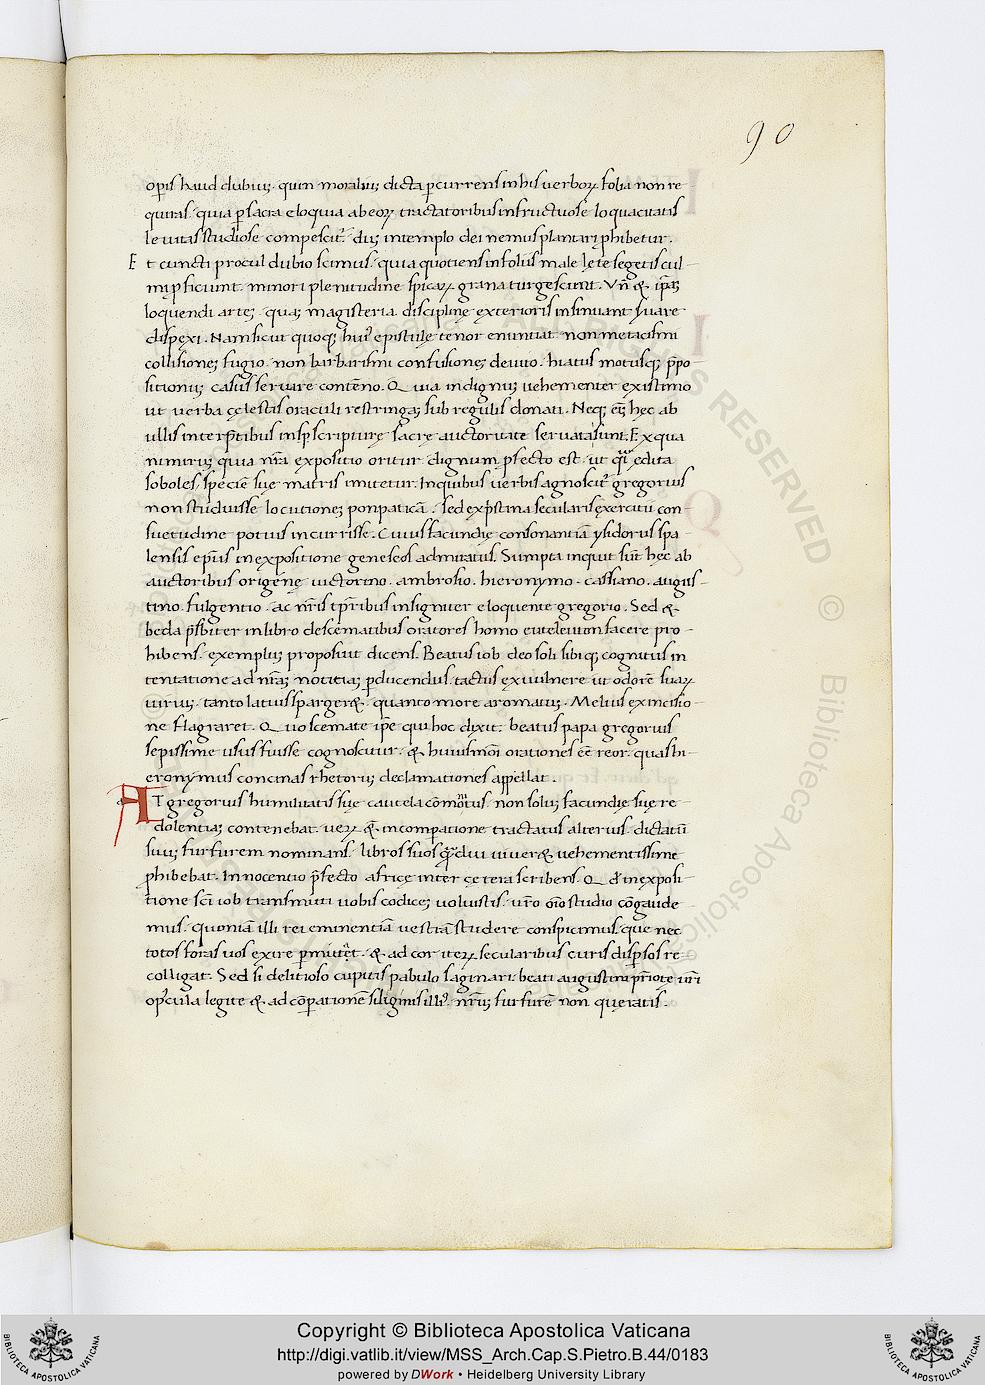 90
op̄is haud dubiuȝ. quin moralibus dicta p̄currens in his verboꝝ folia non re
quiras. quia p̄ sacra eloquia ab eoꝝ tractatoribus infructuosę loquacitatis
levitas studiose compescit̄. duȝ in templo dei nemus plantari ꝓhibetur.
Et cuncti procul dubio scimus. quia quotiens in foliis male lęte segetis cul
mi ꝓficiunt. minori plenitudine spicaꝝ grana turgescunt. Vn̄ & ip̄aȝ
loquendi arteȝ. quaȝ magisteria disciplinę exterioris insinuant ẜuare
despexi. Nam sicut quoqȝ huiꝰ epistulę tenor enuntiat. non metacismi
collisioneȝ fugio. non barbarismi confusioneȝ devito. hiatus motusqȝ p̄po
sitionuȝ casus servare contēno. Quia indignuȝ vehementer existimo
ut verba cęlestis oraculi restringaȝ sub regulis donati. Neqȝ eni hęc ab
ullis interp̄tibus in sp̄ scripturę sacrę auctoritate servata sunt. Ex qua
nimiruȝ quia nr̄a expositio oritur. dignum ꝓfecto est. ut q̄si edita
soboles. speciē suę matris imitetur. In quibus verbis agnoscit̄ gregorius
non studuisse locutioneȝ ponpaticā. sed ex p̄stina secularis exercitii con
suetudine potius incurrisse. Cuius facundię consonantiā ysidorus spa
lensis ep̄us in expositione geneseos admiratus. Sumpta inquit sunt hęc ab
auctoribus origenę victorino. ambrosio. hieronymo. cassiano. augus
tino. fulgentio. ac nr̄is tp̄ribus insigniter eloquente gregorio. Sed &
beda p̄sbiter in libro de scematibus oratores homo euteleuton facere pro
hibens. exempluȝ proposuit dicens. Beatus iob deo soli sibiqȝ cognitus in
tentatione ad nr̄aȝ notitiaȝ p̄ducendus. tactus ex vulnere ut odorē suaꝝ
viriuȝ. tanto latius sparger&. quanto more aromatuȝ. Melius ex incisio
ne flagraret. Quo scemate ip̄e qui hoc dixit. beatus papa gregorius
sępissime usus fuisse cognoscitur. & huiusmoi orationes eē reor. quas hi
eronymus concinas rhetoruȝ declamationes appellat.
AT gregorius humilitatis suę cautela cōmonitus. non soluȝ facundię suę re
dolentiaȝ contenebat. veꝝ &iā in comparatione tractatus alterius. dictatū
suuȝ furfurem nominans. libros suos quādiu viver& vehementissime
ꝓhibebat. Innocentio p̄fecto africę inter cętera scribens. Quod in exposi
tione sc̄i iob transmitti vobis codiceȝ voluistis. vr̄o oīo studio cōgaude
mus. quoniā illi rei eminentiā vestrā studere conspicimus. quę nec
totos foras vos exire p̄mittet. & ad cor iteꝝ secularibus curis disp̄sos re
colligat. Sed si delitioso cupitis pabulo saginari. beati augustini p̄riotę vr̄i
op̄cula legite & ad cōparationē siliginis illiꝰ. nr̄uȝ furfurē non queratis.
Copyright © Biblioteca Apostolica Vaticana
http://digi.vatlib.it/view/MSS_Arch.Cap.S.Pietro.B.44/0183
powered by DWork • Heidelberg University Library